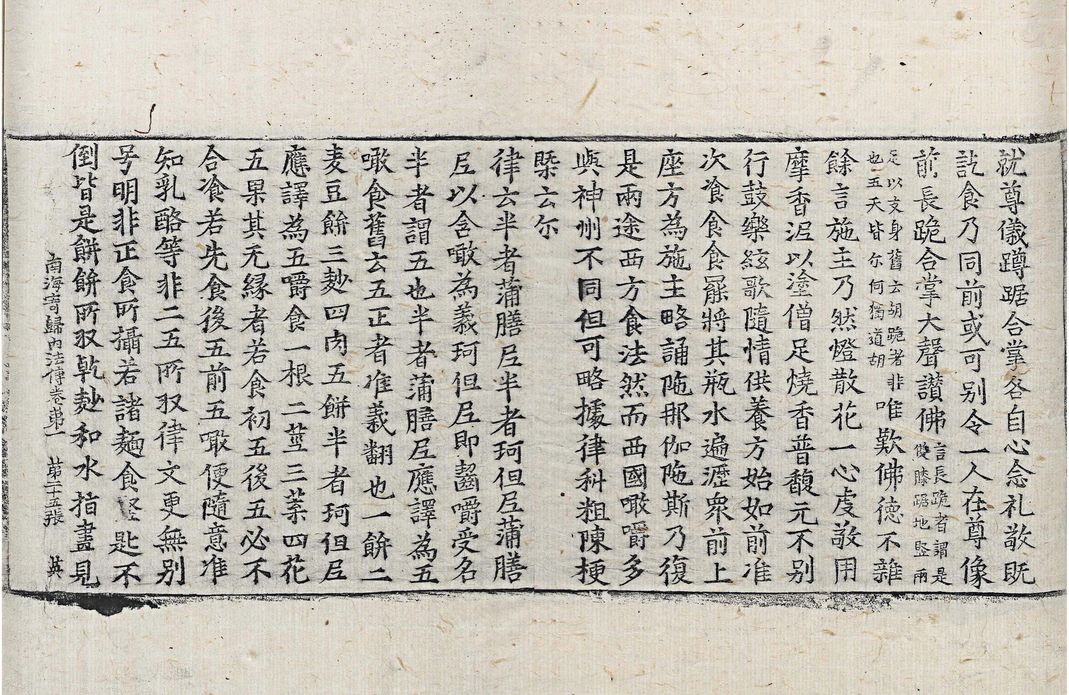 就尊儀蹲踞合掌各自心念礼敬既
訖食乃同前或可别令一人在尊像
前長跪合掌大聲讃佛言長跪者謂是雙膝踞地竪兩
足以支身舊云胡跪者非也五天皆尔何獨道胡唯歎佛德不雜
餘言施主乃然燈散花一心虔敬用
摩香泥以塗僧足燒香普馥元不别
行鼓樂絃歌隨情供養方始如前准
次飡食食罷將其瓶水遍瀝衆前上
座方為施主略誦陁那伽陁斯乃復
是兩途西方食法然而西國噉嚼多
與神州不同但可略據律科粗陳梗
槩云尔
律云半者蒲膳尼半者珂但尼蒲膳
尼以含噉為義珂但尼即齧嚼受名
半者謂五也半者蒲膳尼應譯為五
噉食舊云五正者准義翻也一餅二
麦豆餅三麨四肉五餅半者珂但尼
應譯為五嚼食一根二莖三菜四花
五果其无縁者若食初五後五必不
合飡若先食後五前五噉便隨意准
知乳酪等非二五所收律文更無别
号明非正食所攝若諸麵食竪匙不
倒皆是餅餅所收乾麨和水指畫見
南海寄歸内法傳卷第一 第二十五張 英